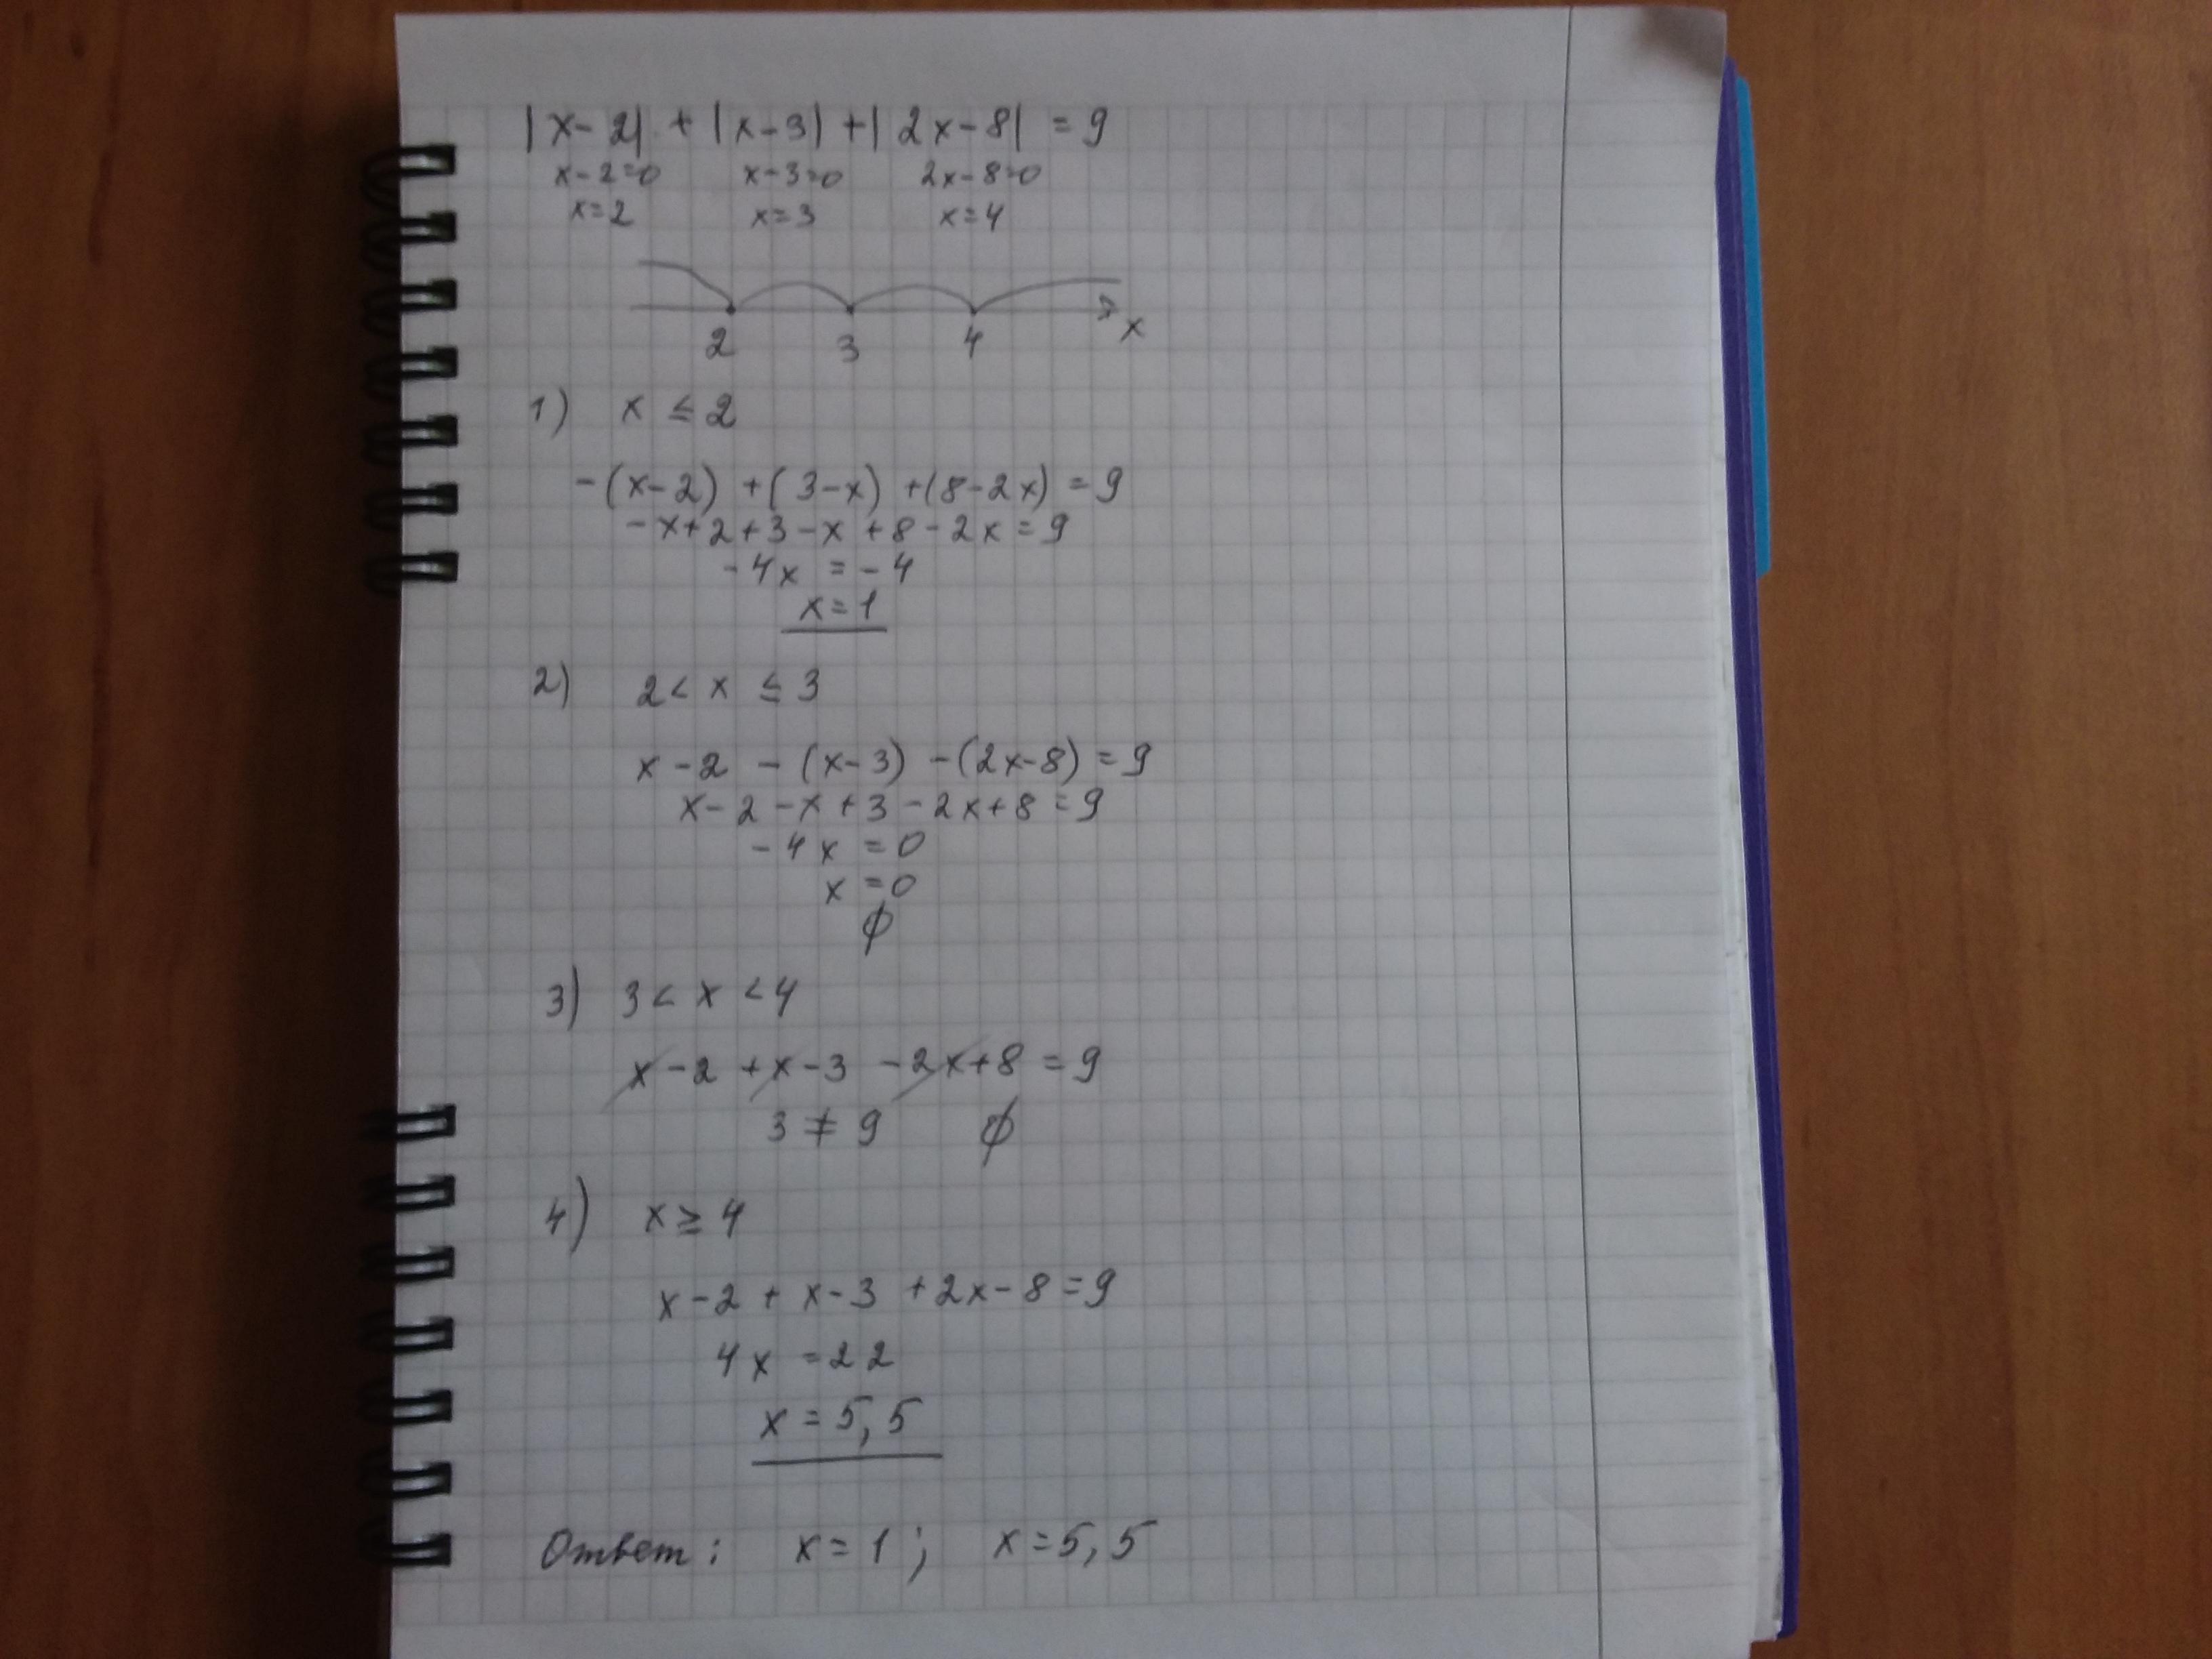 |x-2| + |x-3| + |2x-8| = 9
x-2=0 x-3=0 2x-8=0
x=2 x=3 x=4
2 3 4 x
1) x ≤ 2
-(x-2) +(3-x) +(8-2x) = 9
-x+2+3-x+8-2x=9
-4x = -4
x=1
2) 2 < x ≤ 3
x-2 -(x-3) -(2x-8) = 9
x-2-x+3-2x+8=9
-4x = 0
x = 0
∅
3) 3 < x < 4
x-2 +x-3 -2x+8 = 9
3 ≠ 9 ∅
4) x ≥ 4
x-2 + x-3 +2x-8=9
4x = 22
x = 5,5
Ответ: x=1; x=5,5